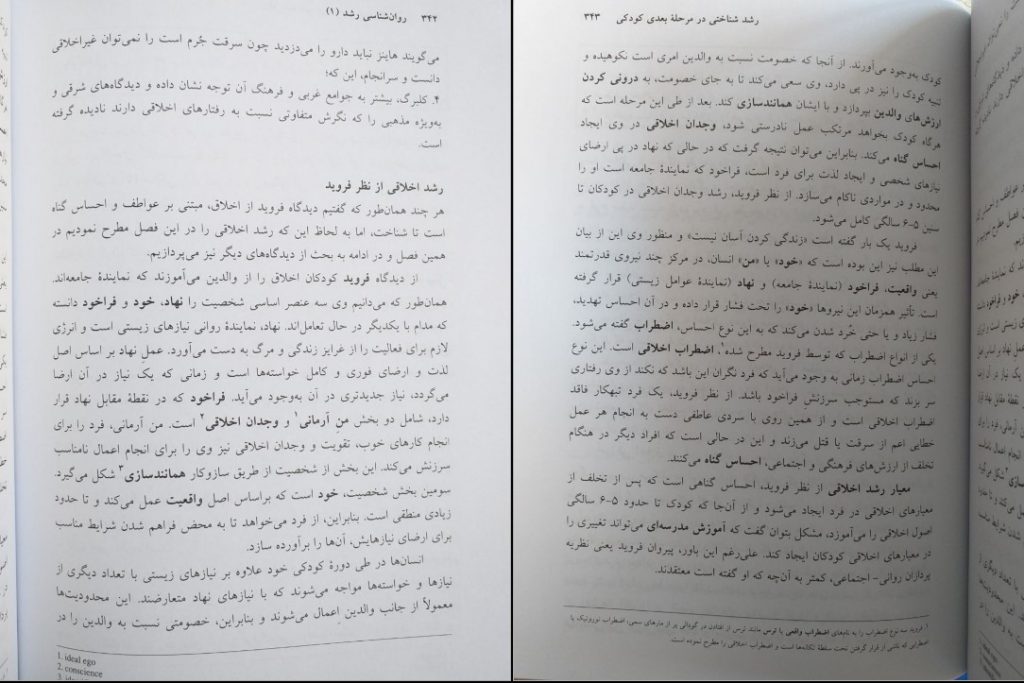 ۳۴۲ روان‌شناسی رشد (۱)
می‌گویند هاینز نباید دارو را می‌دزدید چون سرقت جُرم است را نمی‌توان غیراخلاقی
دانست و سرانجام، این که؛
۴. کلبرگ، بیشتر به جوامع غربی و فرهنگ آن توجه نشان داده و دیدگاه‌های شرقی و
به‌ویژه مذهبی را که نگرش متفاوتی نسبت به رفتارهای اخلاقی دارند نادیده گرفته
است.
رشد اخلاقی از نظر فروید
هر چند همان‌طور که گفتیم دیدگاه فروید از اخلاق، مبتنی بر عواطف و احساس گناه
است تا شناخت، اما به لحاظ این که رشد اخلاقی را در این فصل مطرح نمودیم در
همین فصل و در ادامه به بحث از دیدگاه‌های دیگر نیز می‌پردازیم.
از دیدگاه فروید کودکان اخلاق را از والدین می‌آموزند که نمایندهٔ جامعه‌اند.
همان‌طور که می‌دانیم وی سه عنصر اساسی شخصیت را نهاد، خود و فراخود دانسته
که مدام با یکدیگر در حال تعامل‌اند. نهاد، نمایندهٔ روانی نیازهای زیستی است و انرژی
لازم برای فعالیت را از غرایز زندگی و مرگ به دست می‌آورد. عمل نهاد بر اساس اصل
لذت و ارضای فوری و کامل خواسته‌ها است و زمانی که یک نیاز در آن ارضا
می‌گردد، نیاز جدیدتری در آن به‌وجود می‌آید. فراخود که در نقطهٔ مقابل نهاد قرار
دارد، شامل دو بخش منِ آرمانی۱ و وجدان اخلاقی۲ است. من آرمانی، فرد را برای
انجام کارهای خوب، تقویت و وجدان اخلاقی نیز وی را برای انجام اعمال نامناسب
سرزنش می‌کند. این بخش از شخصیت از طریق سازوکار همانندسازی۳ شکل می‌گیرد.
سومین بخش شخصیت، خود است که براساس اصل واقعیت عمل می‌کند و تا حدود
زیادی منطقی است. بنابراین، از فرد می‌خواهد تا به محض فراهم شدن شرایط مناسب
برای ارضای نیازهایش، آن‌ها را برآورده سازد.
انسان‌ها در طی دورهٔ کودکی خود علاوه بر نیازهای زیستی با تعداد دیگری از
نیازها و خواسته‌ها مواجه می‌شوند که با نیازهای نهاد متعارضند. این محدودیت‌ها
معمولاً از جانب والدین اِعمال می‌شوند و بنابراین، خصومتی نسبت به والدین را در
1. ideal ego
2. conscience
رشد شناختی در مرحلهٔ بعدی کودکی ۳۴۳
کودک به‌وجود می‌آورند. از آنجا که خصومت نسبت به والدین امری است نکوهیده و
تنبیه کودک را نیز در پی دارد، وی سعی می‌کند تا به جای خصومت، به درونی کردن
ارزش‌های والدین بپردازد و با ایشان همانندسازی کند. بعد از طی این مرحله است که
هرگاه کودک بخواهد مرتکب عمل نادرستی شود، وجدان اخلاقی در وی ایجاد
احساس گناه می‌کند. بنابراین می‌توان نتیجه گرفت که در حالی که نهاد در پی ارضای
نیازهای شخصی و ایجاد لذت برای فرد است، فراخود که نمایندهٔ جامعه است او را
محدود و در مواردی ناکام می‌سازد. از نظر فروید، رشد وجدان اخلاقی در کودکان تا
سنین ۵-۶ سالگی کامل می‌شود.
فروید یک بار گفته است «زندگی کردن آسان نیست» و منظور وی این از بیان
این مطلب نیز این بوده است که «خود» یا «من» انسان، در مرکز چند نیروی قدرتمند
یعنی واقعیت، فراخود (نمایندهٔ جامعه) و نهاد (نمایندهٔ عوامل زیستی) قرار گرفته
است. تأثیر همزمان این نیروها «خود» را تحت فشار قرار داده و در آن احساس تهدید،
فشار زیاد و یا حتی خُرد شدن می‌کند که به این نوع احساس، اضطراب گفته می‌شود.
یکی از انواع اضطراب که توسط فروید مطرح شده۱، اضطراب اخلاقی است. این نوع
احساس اضطراب زمانی به وجود می‌آید که فرد نگران این باشد که نکند از وی رفتاری
سر بزند که مستوجب سرزنشِ فراخود باشد. از نظر فروید، یک فرد تبهکار فاقد
اضطراب اخلاقی است و از همین روی با سردی عاطفی دست به انجام هر عمل
خطایی اعم از سرقت یا قتل می‌زند و این در حالی است که افراد دیگر در هنگام
تخلف از ارزش‌های فرهنگی و اجتماعی، احساس گناه می‌کنند.
معیار رشد اخلاقی از نظر فروید، احساس گناهی است که پس از تخلف از
معیارهای اخلاقی در فرد ایجاد می‌شود و از آن‌جا که کودک تا حدود ۵-۶ سالگی
اصول اخلاقی را می‌آموزد، مشکل بتوان گفت که آموزش مدرسه‌ای می‌تواند تغییری را
در معیارهای اخلاقی کودکان ایجاد کند. علی‌رغم این باور، پیروان فروید یعنی نظریه
پردازان روانی- اجتماعی، کمتر به آن‌چه که او گفته است معتقدند.
۱. فروید سه نوع اضطراب را به نام‌های اضطراب واقعی یا ترس مانند ترس از افتادن در گودالی پر از مارهای سمی، اضطراب نوروتیک یا
اضطرابی که ناشی از قرار گرفتن تحت سلطهٔ تکانه‌ها است و اضطراب اخلاقی را مطرح نموده است.